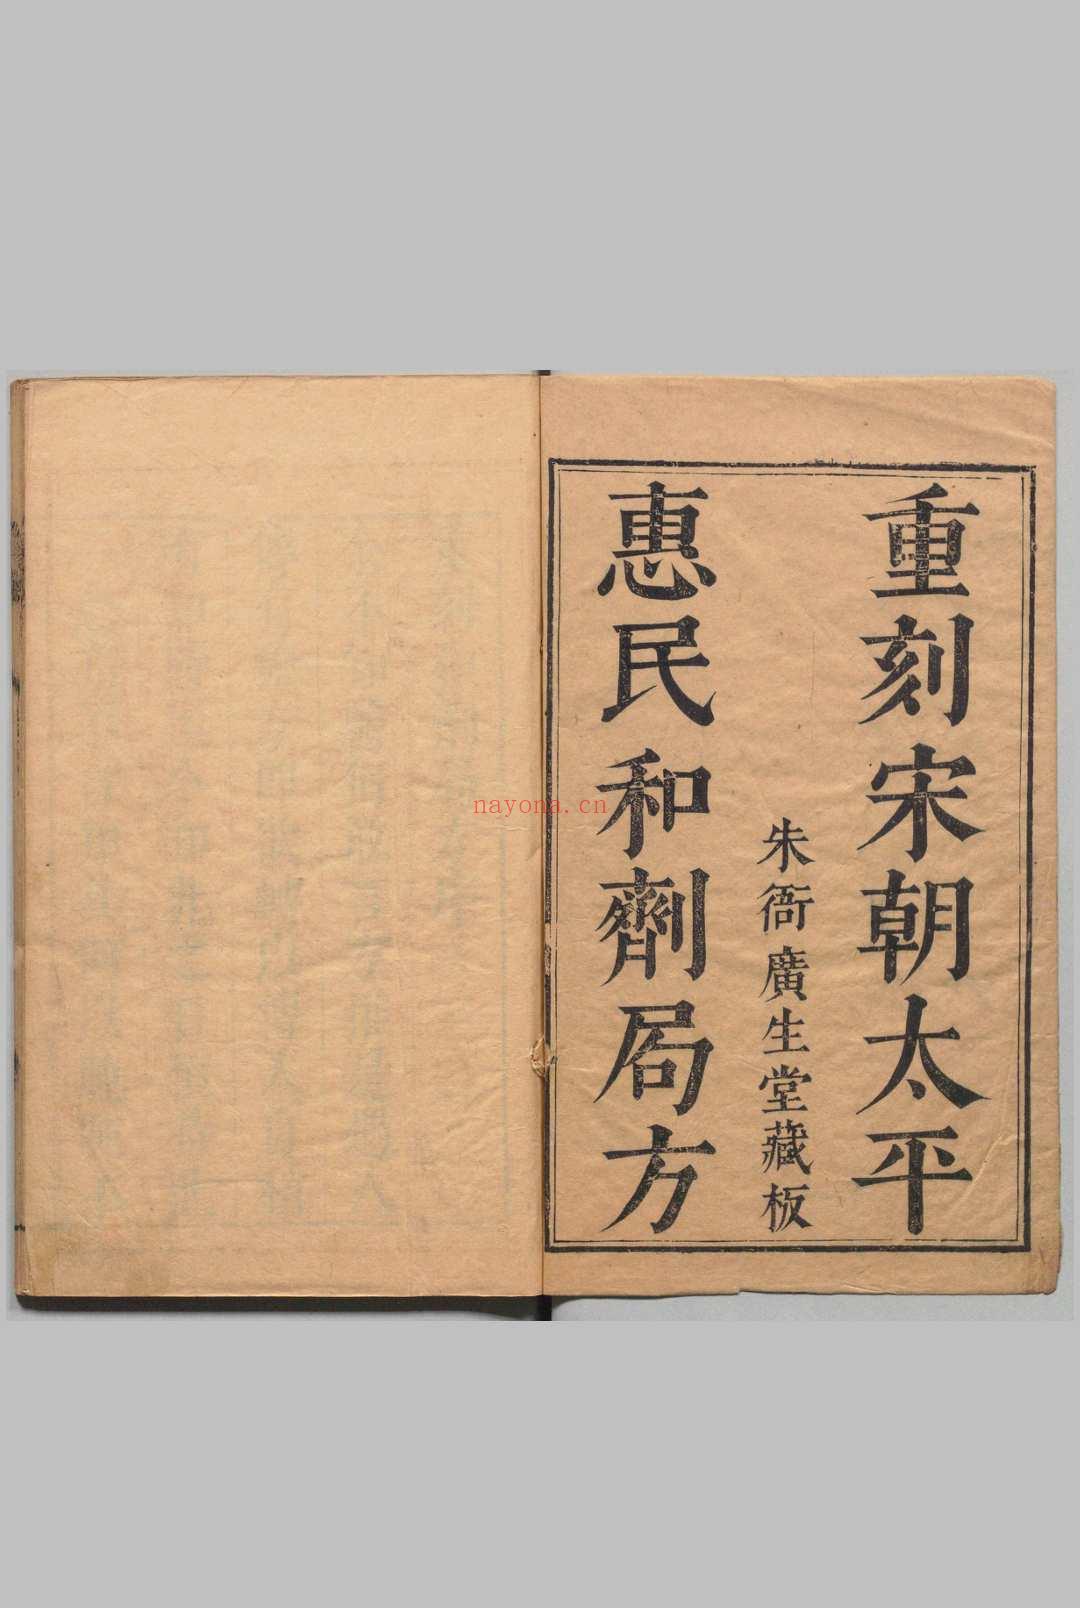 重刻宋朝太平
朱衙廣生堂藏板
惠民和劑局方
nayona.cn